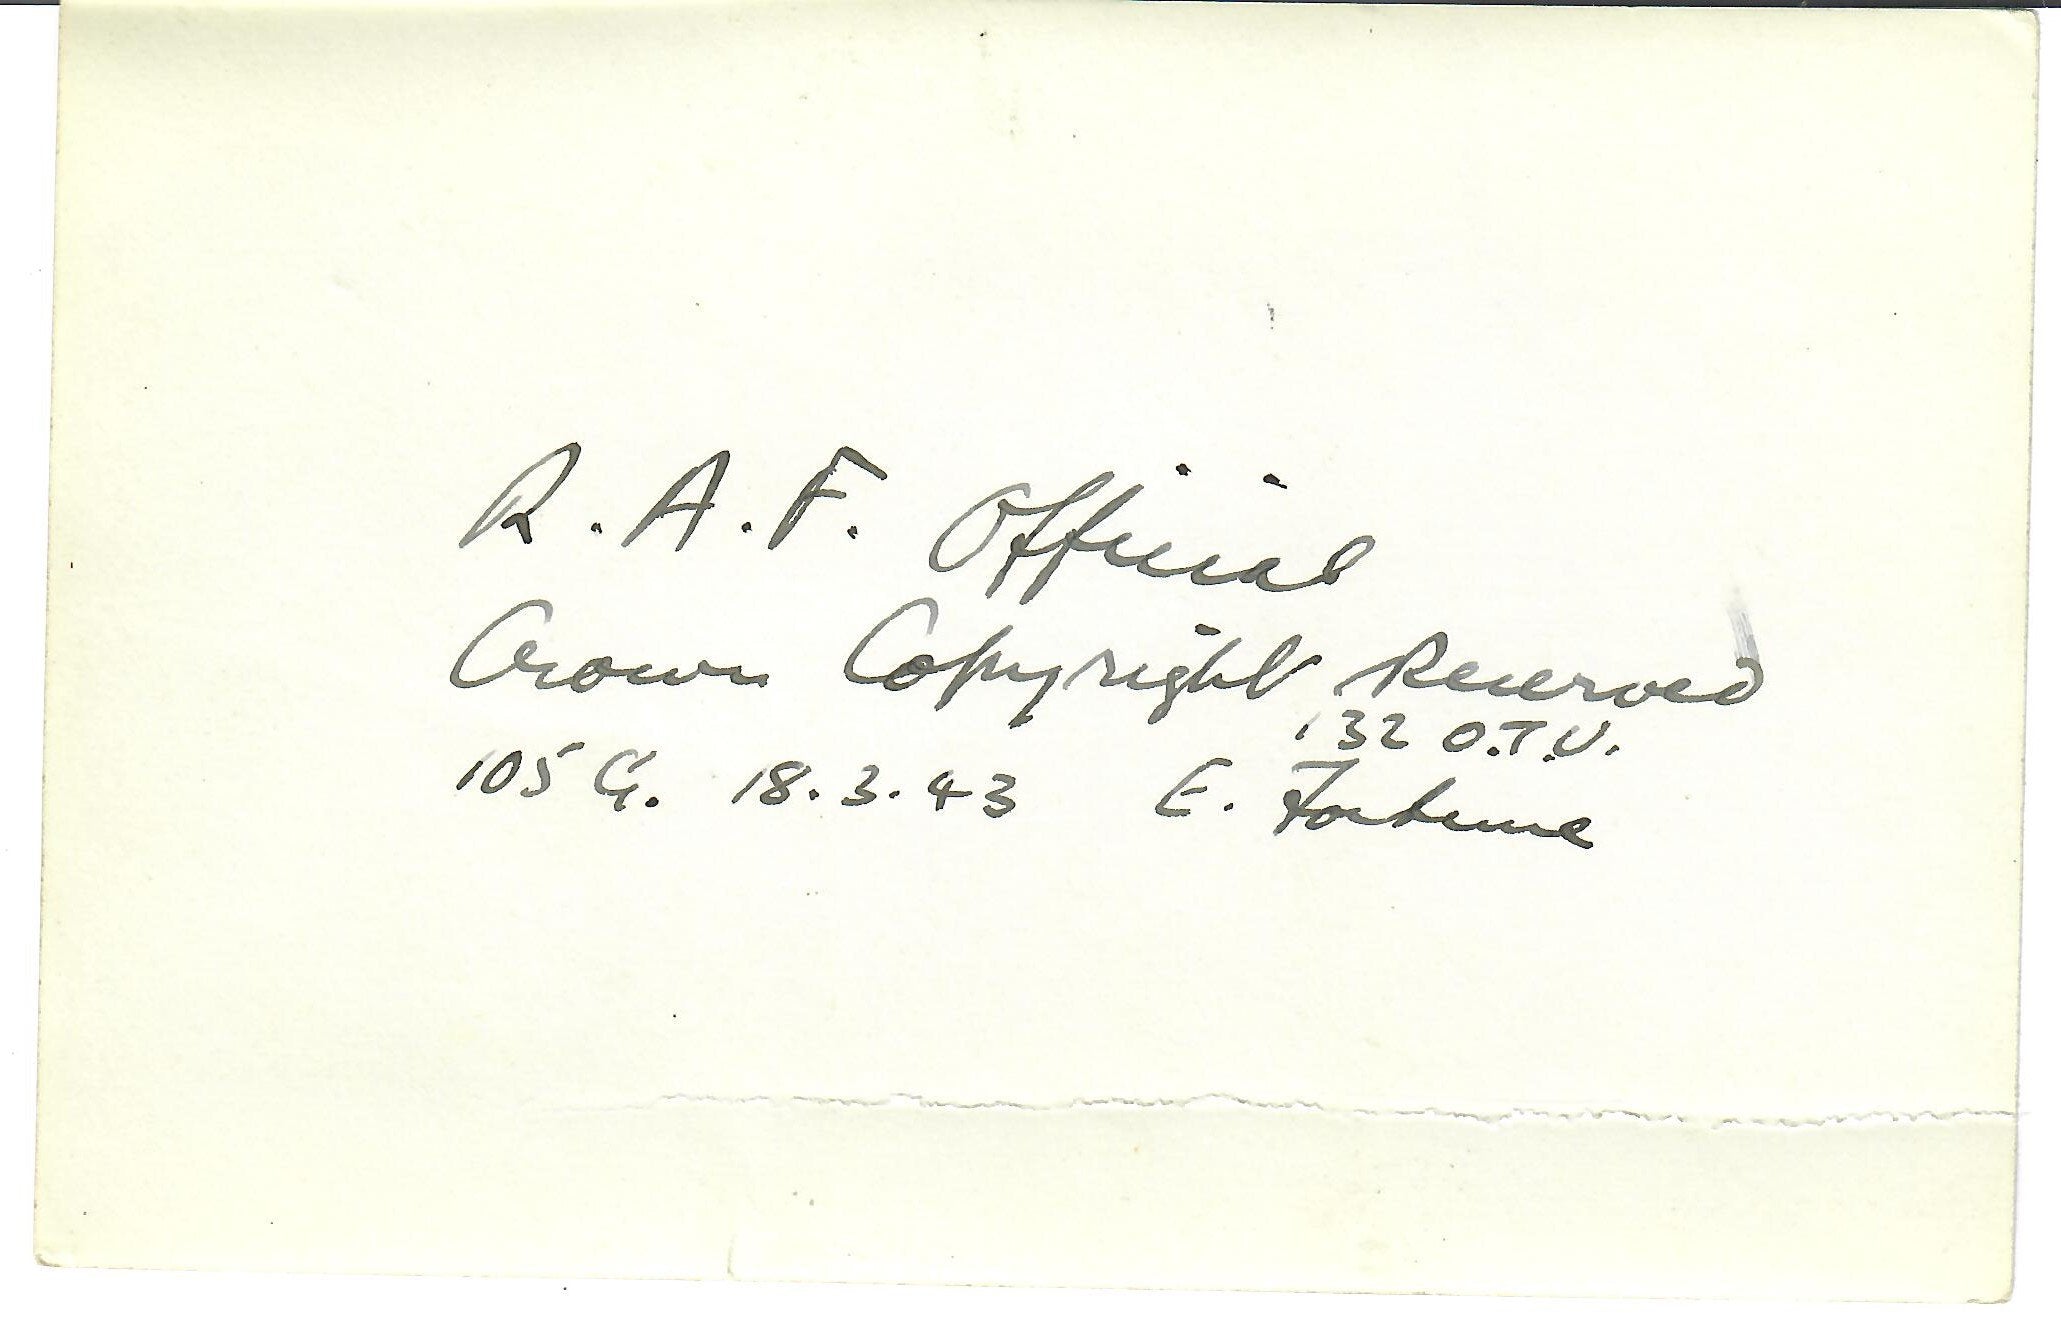 R.A.F. Official
Crown Copyright Reserved
132 O.T.U.
105 G. 18.3.43 E. Fortune